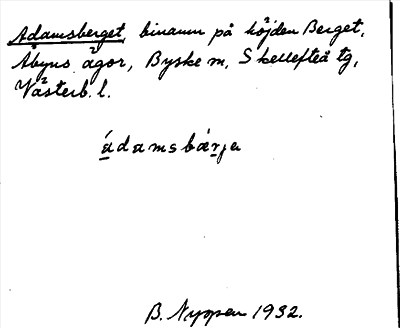 Adamsberget, binamn på höjden Berget,
Åbyns ägor, Byske m, Skellefteå tg,
Västerb. l.
ádamsbærja
B. Nyman 1932.